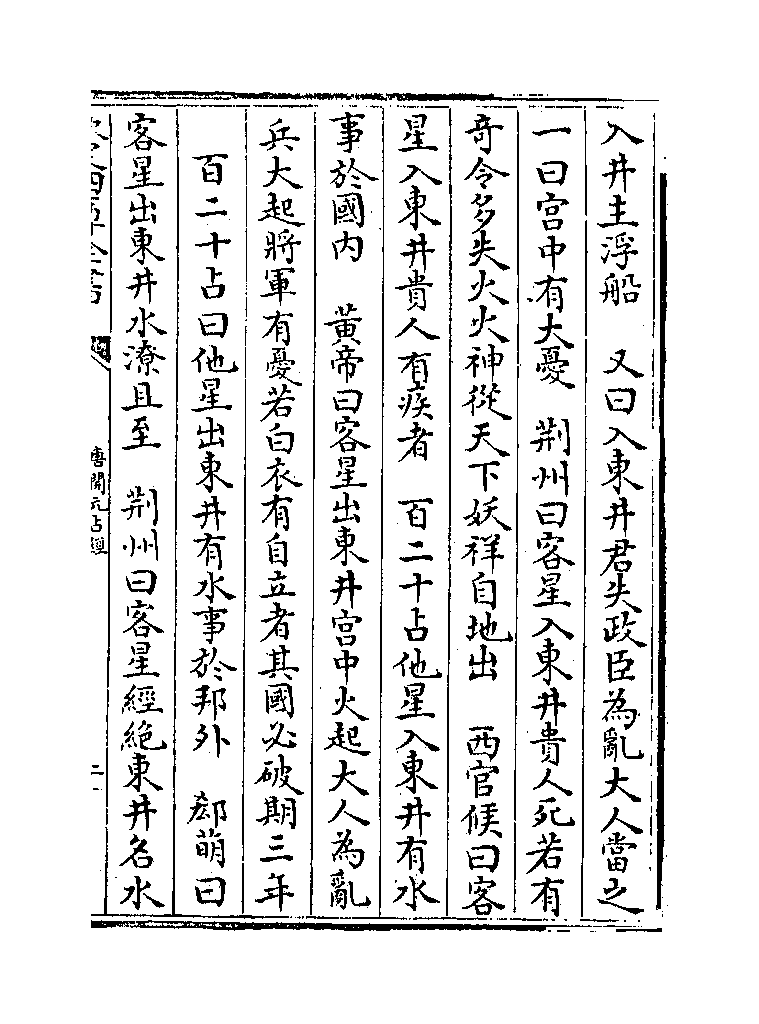 入井主浮船　又曰入東井君失政臣為亂大人當之
一曰宫中有大憂　荆州曰客星入東井貴人死若有
竒令多失火火神從天下妖祥自地出　西官候曰客
星入東井貴人有疾者　百二十占他星入東井有水
事於國内　黄帝曰客星出東井宫中火起大人為亂
兵大起將軍有憂若白衣有自立者其國必破期三年
百二十占曰他星出東井有水事於邦外　郄萌曰
客星出東井水潦且至　荆州曰客星經絶東井名水
唐開元占經